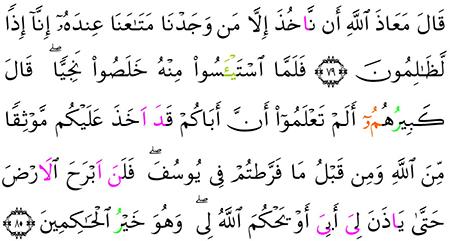 قَالَ مَعَاذَ ٱللَّهِ أَن نَّاخُذَ إِلَّا مَن وَجَدْنَا مَتَٰعَنَا عِندَهُۥٓ إِنَّآ إِذًا
لَّظَٰلِمُونَ ۝٧٩ فَلَمَّا ٱسْتَيْـَٔسُوا۟ مِنْهُ خَلَصُوا۟ نَجِيًّا ۖ قَالَ
كَبِيرُهُمُۥٓ أَلَمْ تَعْلَمُوٓا۟ أَنَّ أَبَاكُمْ قَدَ اَخَذَ عَلَيْكُم مَّوْثِقًا
مِّنَ ٱللَّهِ وَمِن قَبْلُ مَا فَرَّطتُمْ فِى يُوسُفَ ۖ فَلَنَ اَبْرَحَ ٱلَارْضَ
حَتَّىٰ يَاذَنَ لِىَ أَبِىَ أَوْ يَحْكُمَ ٱللَّهُ لِى ۖ وَهُوَ خَيْرُ ٱلْحَٰكِمِينَ ۝٨٠